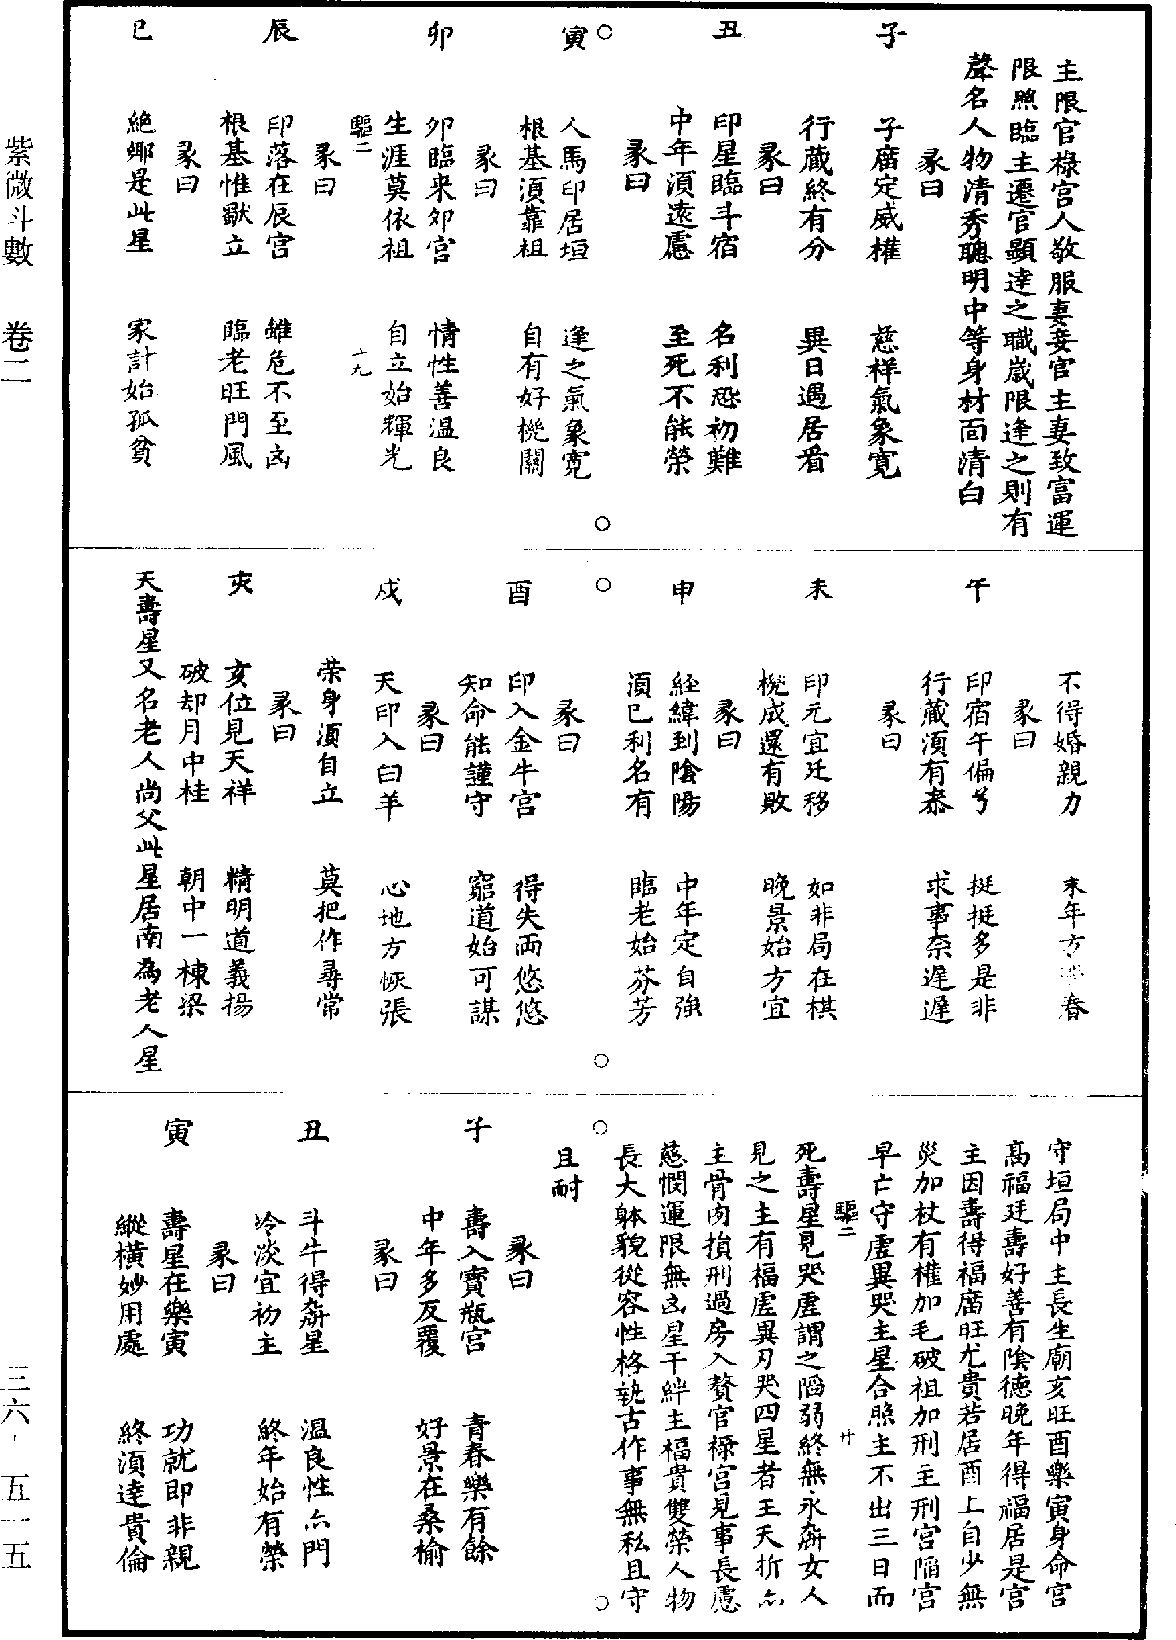 紫微斗數 卷二 三六－五一五
主限官祿宮人敬服妻妾官主妻致富運
限照臨主遷官顯達之職歲限逢之則有
聲名人物清秀聰明中等身材面清白
彖曰
子 子廣定威權 慈祥氣象寬
行藏終有分 異日遇居看
彖曰
丑 印星臨斗宿 名利恐初難
中年須遠慮 至死不能榮
彖曰
寅 人馬印居垣 逢之氣象寬
根基須靠祖 自有好機關
彖曰
卯 卯臨來卯宮 情性善溫良
生涯莫依祖 自立始輝光
驅二 十九
彖曰
辰 印落在辰宮 雖危不至凶
根基惟獻立 臨老旺門風
彖曰
巳 絕鄉是此星 家計始孤貧
不得婚親力 末年方 春
彖曰
午 印宿午偏兮 挺挺多是非
行藏須有泰 求事奈遲遲
彖曰
未 印元宜廷移 如非局在棋
機成還有敗 晚景始方宜
彖曰
申 經緯到陰陽 中年定自強
須已利名有 臨老始芬芳
彖曰
酉 印入金牛宮 得失兩悠悠
知命能謹守 窮道始可謀
彖曰
戍 天印入白羊 心地方恢張
荣身須自立 莫把作尋常
彖曰
亥 亥位見天祥 精明道義揚
破却月中桂 朝中一棟梁
天壽星又名老人尚父此星居南為老人星
守垣局中主長生廟亥旺酉樂寅身命宮
高福廷壽好善有陰德晚年得福居是宮
主因壽得福廣旺尤貴若居酉上自少無
災加杖有權加毛破祖加刑主刑宮陷宮
早亡守虛異哭主星合照主不出三日而
驅二 廿
死壽星見哭虛謂之陷弱終無永寿女人
見之主有福虛異刃哭四星者王天折亦
主骨肉損刑過房入贅官祿宮見事長慮
慈憫運限無凶星干絆主福貴雙榮人物
長大躰貌從容性格執古作事無私且守
且耐
彖曰
子 壽入寳瓶宮 青春樂有餘
中年多反覆 好景在桑榆
彖曰
丑 斗牛得寿星 溫良性亦門
冷淡宜初主 終年始有榮
彖曰
寅 壽星在樂寅 功就即非親
縱橫妙用處 終須達貴倫